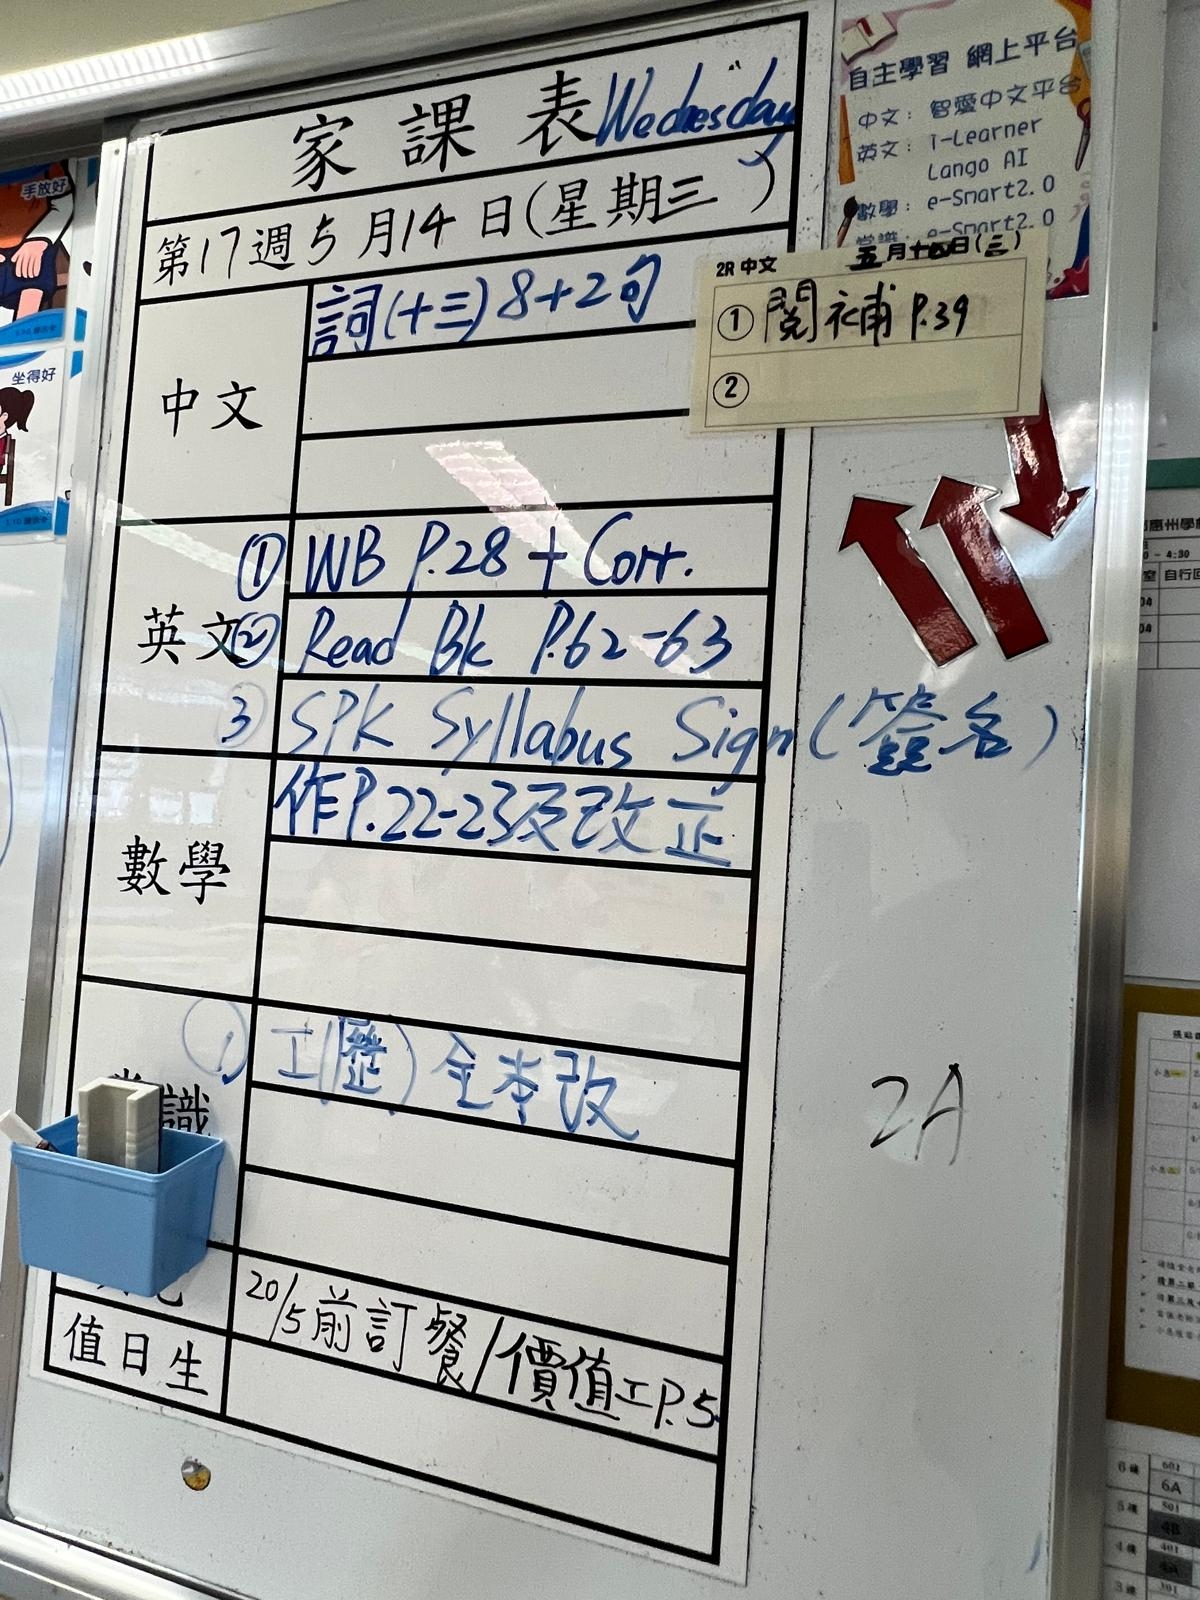 家課表 Wednesday
第17週5月14日(星期三)
中文
詞(十三)8+2句
2R 中文 五月十四日(三)
① 閱補 P.39
②
英文
① WB P.28 + Corr.
② Read Bk P.62-63
③ SPK Syllabus Sign (簽名)
數學
作P.22-23及改正
識
① 工(歷)全本改
20/5前訂餐/價值工P.5
值日生
2A
自主學習 網上平台
中文: 智愛中文平台
英文: i-Learner
Lango AI
數學: e-Smart2.0
常識: e-Smart2.0
手放好
坐得好
惠州學
- 4:30
自行回
04
04
小息
小息
601
6A
501
4B
401
4A
301